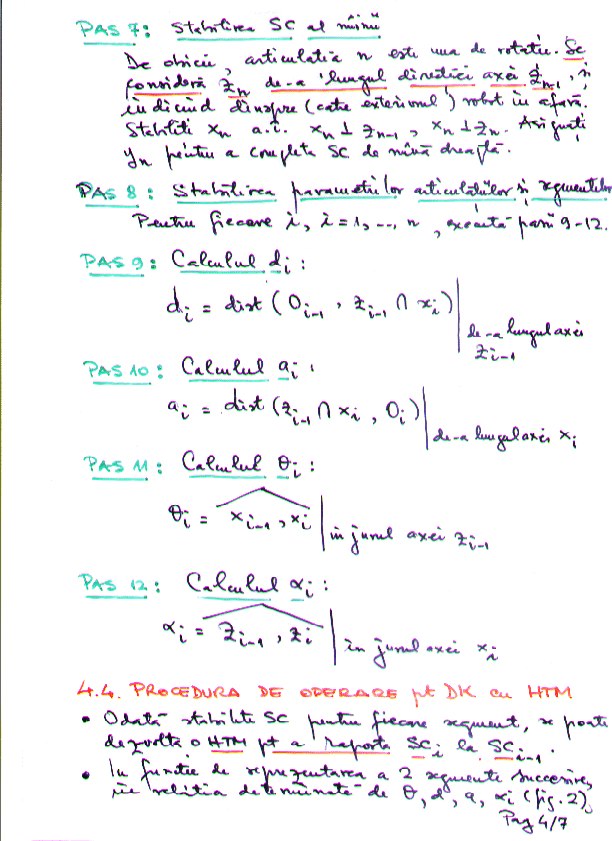 PAS 7: Stabilirea SC al mînii
De obicei, articulatia n este una de rotatie. Se
consideră z_n de-a lungul directiei axei z_{n-1}, și
indicînd dinspre (catre exteriorul) robot în afară.
Stabiliti x_n a.î. x_n ⊥ z_{n-1}, x_n ⊥ z_n. Asiguați
y_n pentru a completa SC de mînă dreaptă.
PAS 8: Stabilirea parametrilor articulatiilor și segmentelor
Pentru fiecare i, i=1,..., n, execută pașii 9-12.
PAS 9: Calculul d_i:
d_i = dist (O_{i-1}, z_{i-1} ∩ x_i) | de-a lungul axei
z_{i-1}
PAS 10: Calculul a_i:
a_i = dist (z_{i-1} ∩ x_i, O_i) | de-a lungul axei x_i
PAS 11: Calculul θ_i:
θ_i = x_{i-1}, x_i | în jurul axei z_{i-1}
PAS 12: Calculul α_i:
α_i = z_{i-1}, z_i | în jurul axei x_i
4.4. PROCEDURA DE OPERARE pt DK cu HTM
• Odată stabilite SC pentru fiecare segment, se poate
dezvolta o HTM pt a raporta SC_i la SC_{i-1}.
• In functie de reprezentarea a 2 segmente succesive,
relatia determinată de θ, d, a, α_i (fig. 2)
Pag 4/7